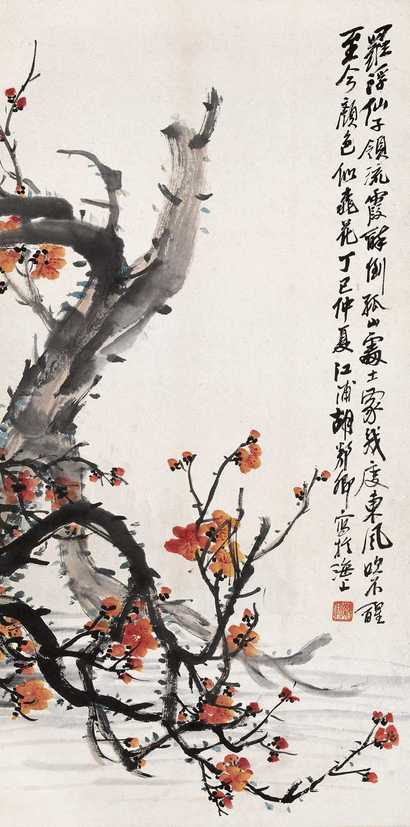 羅浮仙子領流霞醉倒孤山處士家幾度東風吹不醒
至今顏色似桃花丁巳仲夏江浦胡郯卿寫於海上